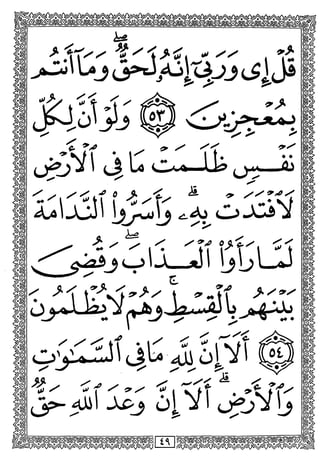 قُلْ إِى وَرَبِّىٓ إِنَّهُۥ لَحَقٌّۖ وَمَآ أَنتُم
بِمُعْجِزِينَ ٥٣ وَلَوْ أَنَّ لِكُلِّ
نَفْسٍ ظَلَمَتْ مَا فِى ٱلْأَرْضِ
لَٱفْتَدَتْ بِهِۦۗ وَأَسَرُّوا۟ ٱلنَّدَامَةَ
لَمَّا رَأَوُا۟ ٱلْعَذَابَۖ وَقُضِىَ
بَيْنَهُم بِٱلْقِسْطِۚ وَهُمْ لَا يُظْلَمُونَ
٥٤ أَلَآ إِنَّ لِلَّهِ مَا فِى ٱلسَّمَٰوَٰتِ
وَٱلْأَرْضِۗ أَلَآ إِنَّ وَعْدَ ٱللَّهِ حَقٌّ
٤٩